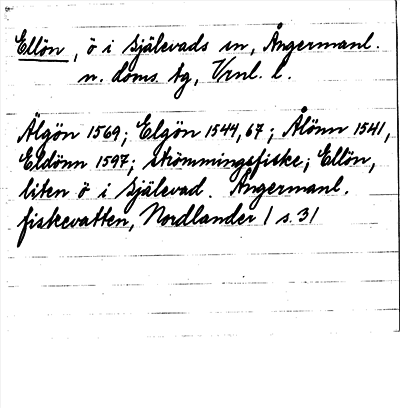 Ellön, ö i Själevads sn, Ångermanl.
n. doms. tg, Vrnl. l.
Älgön 1569; Elgön 1544, 67; Ålönn 1541,
Eldönn 1597; strömmingsfiske; Ellön,
liten ö i Själevad. Ångermanl.
fiskevatten, Nordlander 1 s. 31